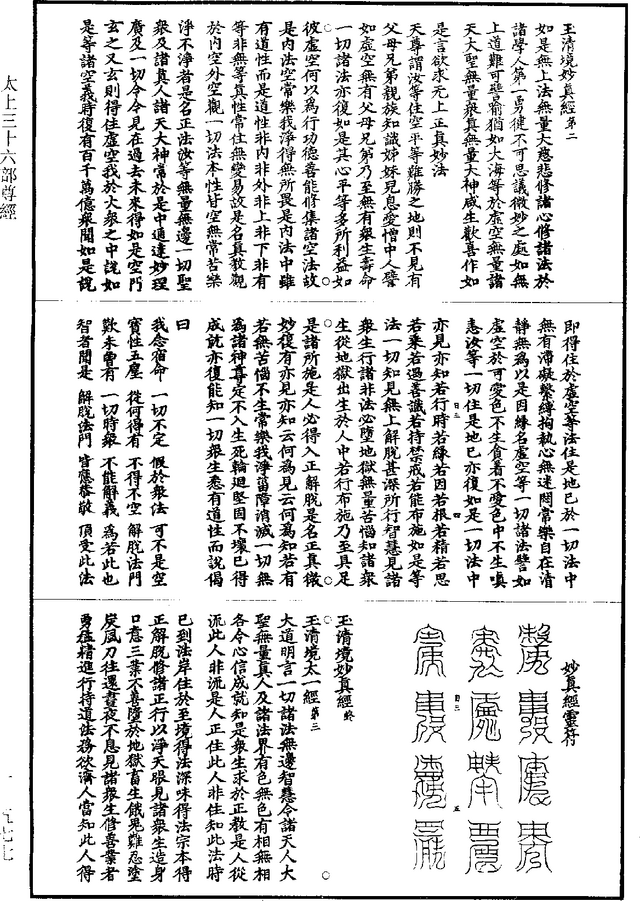 玉清境妙真經第二
如是無上法無量大慈悲修諸心修諸法於
諸學人第一勇健不可思議微妙之處如無
上道難可譬喻猶如大海等於虛空無量諸
天大聖無量衆真無量大神咸生歡喜作如
是言欲求无上正真妙法
天尊謂汝等住空平等難勝之地則不見有
父母兄弟親族知識姊妹兒息愛憎中人譬
如虛空無有父母兄弟乃至無有衆生壽命
一切諸法亦復如是其心平等多所利益如
彼虛空何以爲行功德善能修集諸空法故
是内法空常樂我淨得無所畏是内法中雖
有道性而是道性非内非外非上非下非有
等非無等真性常住無變易故是名真教觀
於内空外空觀一切法本性皆空無常苦樂
淨不淨者是名正法汝等無量無邊一切聖
衆及諸真人諸天大神常於是中通達妙理
廣及一切令令見在過去未來得如是空門
玄之又玄則得住虛空我於大衆之中說如
是等諸空義時復有百千萬億衆聞如是說
即得住於虛空等法住是地已於一切法中
無有滯礙繫縛拘執心無迷悶常樂自在清
靜無為以是因緣名虛空等一切諸法譬如
虛空於可愛色不生貪着不愛色中不生嗔
恚汝等一切住是地已亦復如是一切法中
亦見亦知若行時若緣若因若根若精若思
若乘若過善識若持禁戒若能布施如是等
法一切知見無上解脫甚深所行智慧見諸
衆生行諸非法必墮地獄無量苦惱知諸衆
生從地獄出生於人中若行布施乃至具足
是諸所施是人必得入正解脫是名正真微
妙復有亦見亦知云何爲見云何爲知若有
若無苦惱不生常樂我淨菑障消滅一切無
爲諸神尊定不入生死輪迴堅固不壞已得
成就亦復能知一切衆生悉有道性而說偈
曰
我念宿命　一切不定　假於衆法　可不是空
實性五塵　從何得有　不得不空　解脫法門
歎未曾有　一切時衆　不能解義　爲若此也
智者聞是　解脫法門　皆應恭敬　頂受此法
妙真經靈符
玉清境妙真經終
玉清境太一經第三
大道明言一切諸法無邊智慧令諸天人大
聖無量真人及諸法界有色無色有相無相
各令心信成就知是衆生求於正教是人從
流此人非流是人正住此人非住知此法時
已到法岸住於至境得法深味得法宗本得
正解脫修諸正行以淨天眼見諸衆生造身
口意三業不善墮於地獄畜生餓鬼難忍塗
炭風刀往還晝夜不息見諸衆生修善業者
勇猛精進行持道法務欲濟人當知此人得
太上三十六部尊經